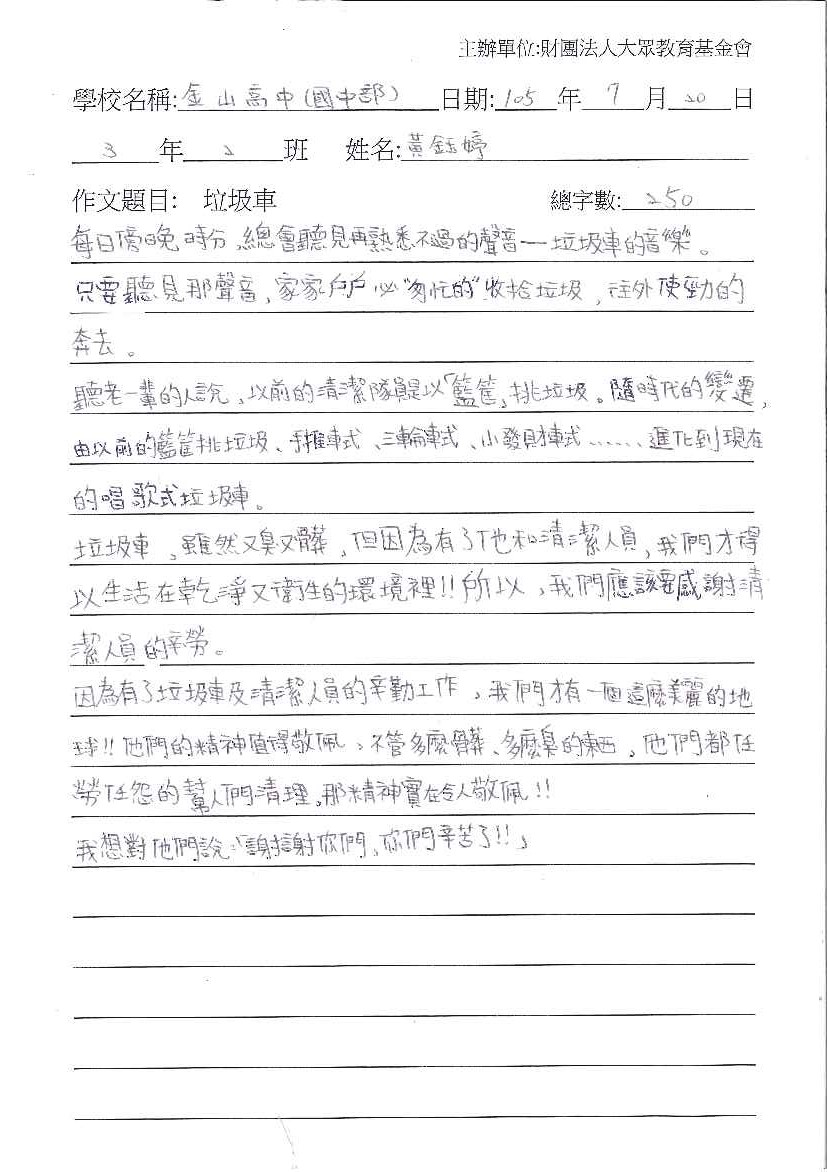 主辦單位:財團法人大眾教育基金會
學校名稱:金山高中(國中部) 日期:105 年 9 月 20 日
3 年 2 班 姓名:黃鈺婷
作文題目: 垃圾車 總字數: 250
每日傍晚時分,總會聽見再熟悉不過的聲音—垃圾車的音樂。
只要聽見那聲音,家家戶戶必"匆忙的"收拾垃圾,往外使勁的
奔去。
聽老一輩的人說,以前的清潔隊員是以「籃筐」挑垃圾。隨時代的變遷,
由以前的籃筐挑垃圾、手推車式、三輪車式、小發財車式……進化到現在
的唱歌式垃圾車。
垃圾車,雖然又臭又髒,但因為有了他和清潔人員,我們才得
以生活在乾淨又衛生的環境裡!!所以,我們應該要感謝清
潔人員的辛勞。
因為有了垃圾車及清潔人員的辛勤工作,我們才有一個這麼美麗的地
球!!他們的精神值得敬佩,不管多麼骯髒、多麼臭的東西,他們都任
勞任怨的幫人們清理,那精神實在令人敬佩!!
我想對他們說:「謝謝你們,你們辛苦了!!」